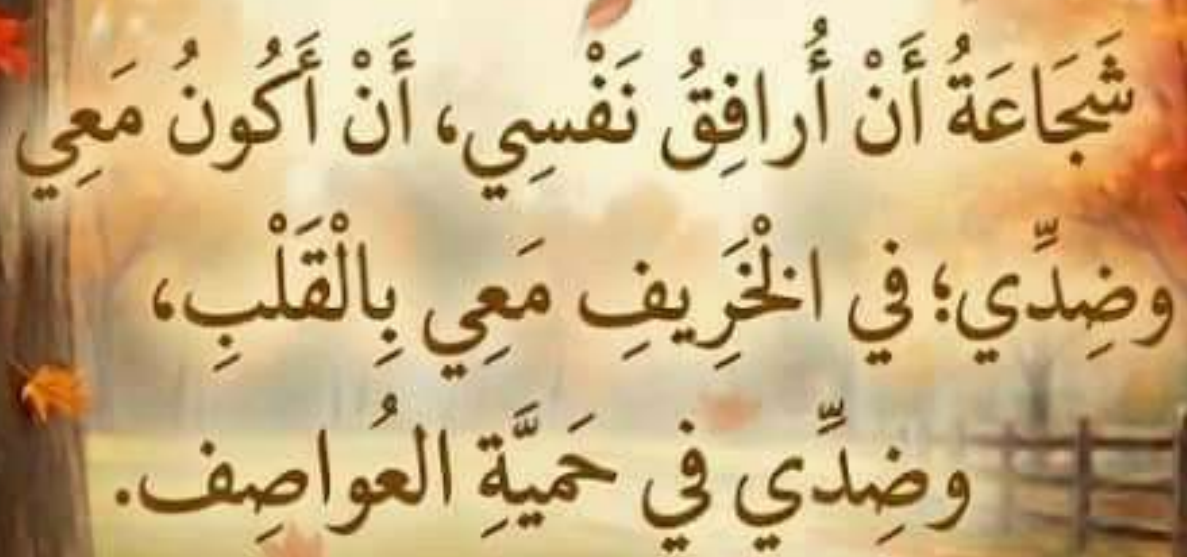 شَجَاعَةُ أَنْ أُرافِقُ نَفْسِي، أَنْ أَكُونُ مَعِي
وضِدِّي؛ في الْخَرِيفِ مَعِي بِالْقَلْبِ،
وضِدِّي في حَميَّةِ العُواصِف.